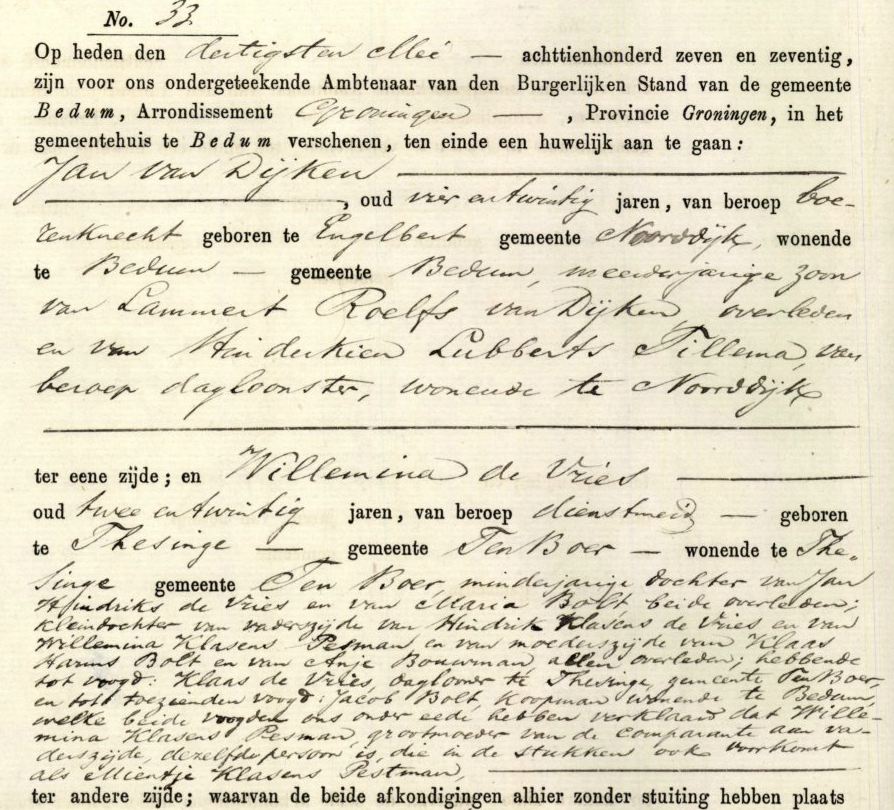 No. 33.
Op heden den dertigsten Mei — achttienhonderd zeven en zeventig,
zijn voor ons ondergeteekende Ambtenaar van den Burgerlijken Stand van de gemeente
Bedum, Arrondissement Groningen — , Provincie Groningen, in het
gemeentehuis te Bedum verschenen, ten einde een huwelijk aan te gaan:
Jan van Dijken —
—, oud vier en twintig jaren, van beroep boe-
renknecht geboren te Engelbert gemeente Noorddijk, wonende
te Bedum — gemeente Bedum, meerderjarige zoon
van Lammert Roelfs van Dijken, overleden
en van Hinderkien Lubberts Tillema, van
beroep dagloonster, wonende te Noorddijk
ter eene zijde; en Willemina de Vries —
oud twee en twintig jaren, van beroep dienstmeid — geboren
te Thesinge — gemeente Ten Boer — wonende te The-
singe gemeente Ten Boer, minderjarige dochter van Jan
Hindriks de Vries en van Maria Bolt, beide overleden;
kleindochter van vaderszijde van Hindrik Klasens de Vries en van
Willemina Klasens Pesman en van moederszijde van Klaas
Harms Bolt en van Anje Bouwman, allen overleden; hebbende
tot voogd: Klaas de Vries, daglooner te Thesinge, gemeente Ten Boer,
en tot toezienden voogd: Jacob Bolt, koopman wonende te Bedum,
welke beide voogden ons onder eede hebben verklaard dat Wille-
mina Klasens Pesman, grootmoeder van de comparante aan va-
derszijde, dezelfde persoon is, die in de stukken ook voorkomt
als Mientje Klasens Pestman, —
ter andere zijde; waarvan de beide afkondigingen alhier zonder stuiting hebben plaats